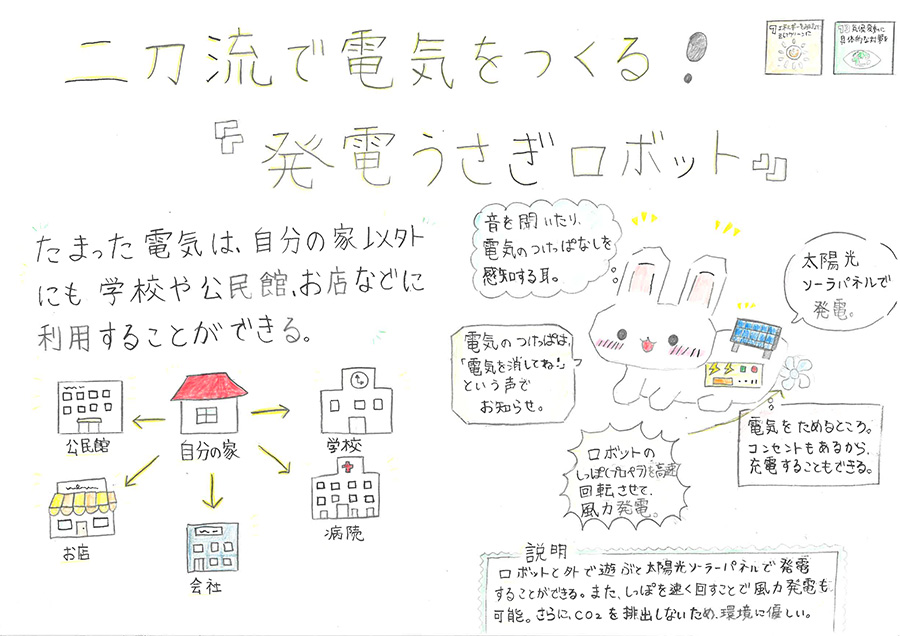 二刀流で電気をつくる!
7 エネルギーをみんなに
そしてクリーンに
13 気候変動に
具体的な対策を
『発電うさぎロボット』
たまった電気は、自分の家以外
にも学校や公民館、お店などに
利用することができる。
公民館
自分の家
学校
お店
会社
病院
音を聞いたり、
電気のつけっぱなしを
感知する耳。
太陽光
ソーラパネルで
発電。
電気のつけっぱは、
「電気を消してね!」
という声で
お知らせ。
ロボットの
しっぽ(プロペラ)を高速
回転させて、
風力発電。
電気をためるところ。
コンセントもあるから、
充電することもできる。
説明
ロボットと外で遊ぶと太陽光ソーラーパネルで発電
することができる。また、しっぽを速く回すことで風力発電も
可能。さらに、CO2を排出しないため、環境に優しい。